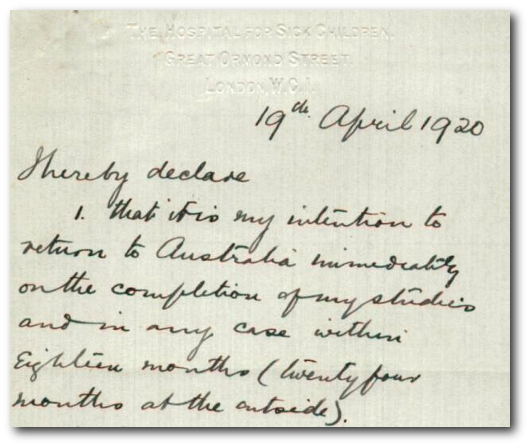 THE HOSPITAL FOR SICK CHILDREN,
GREAT ORMOND STREET,
LONDON, W.C.1.
19th April 1920
I hereby declare
1. that it is my intention to
return to Australia immediately
on the completion of my studies
and in any case within
Eighteen months (twenty four
months at the outside).